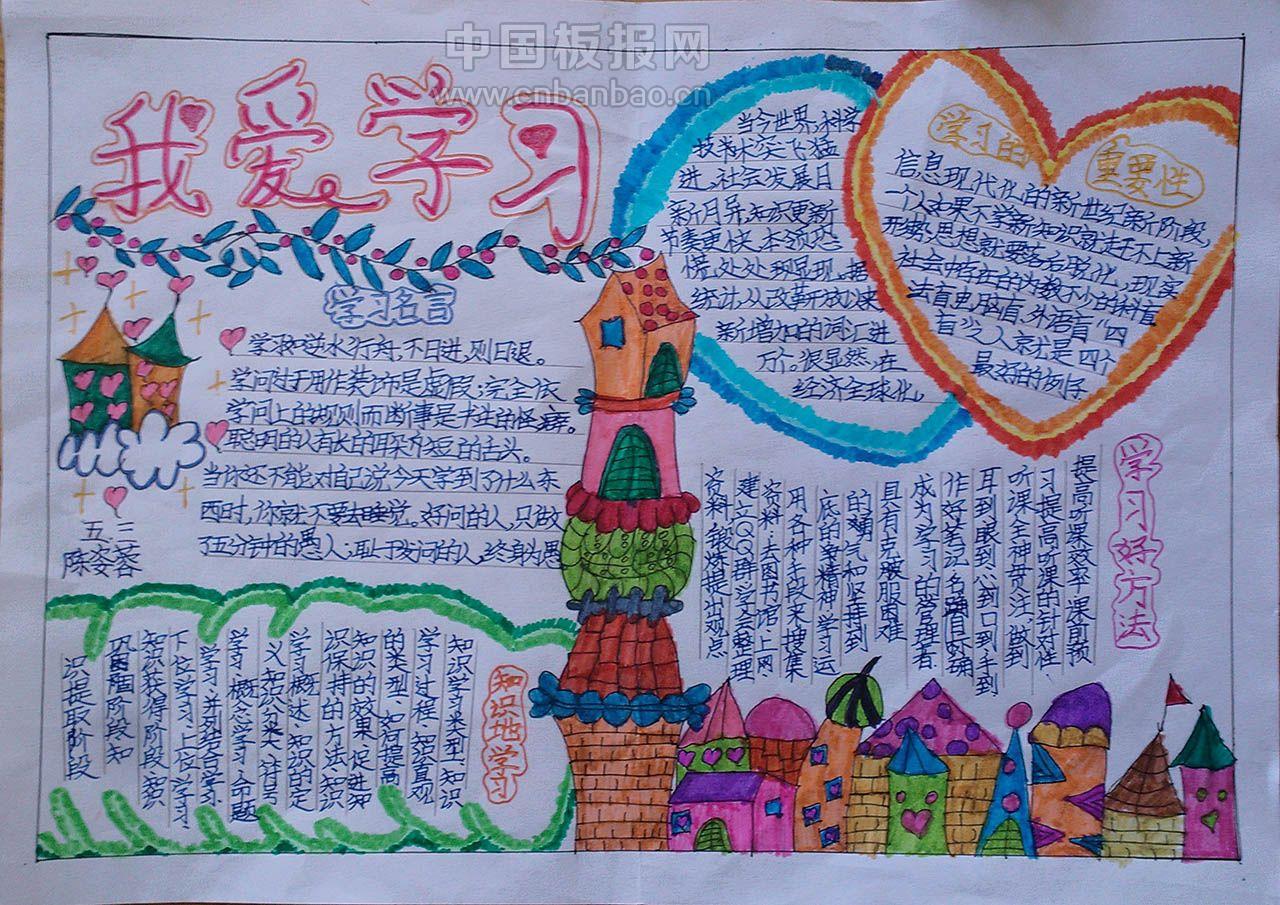 中国板报网
www.cnbanbao.cn
我爱学习
学习名言
学习如逆水行舟,不日进,则日退。
学问过于用作装饰是虚假;完全依
学问上的规则而断事是书生的怪癖。
聪明的人有长的耳朵和短的舌头。
当你还不能对自己说今天学到了什么东
西时,你就不要去睡觉。好问的人,只做
了五分钟的愚人;耻于发问的人,终身为愚
五.三
陈姿蓉
当今世界,科学
技术突飞猛
进,社会发展日
新月异,知识更新
节奏更快,本领恐
慌,处处现显现。据
统计,从改革开放以来
新增加的词汇进
万个。很显然,在
经济全球化。
学习的
重要性
信息现代化的新世纪新阶段,
一个人如果不学新知识就赶不上新
形势,思想就要落后脱化,现实
社会中存在的为数不少的科盲
法盲电脑盲、外语盲“四
盲”少人京尤是四个
最好的例子
学习好方法
提高听课效率课前预
习提高听课的针对性
听课全神贯注,做到
耳到眼到心到口到手到
作好笔记名确目阶确
成为学习的管理者
具有克服困难
的勇气和坚持到
底的精神学习运
用各种手段来搜集
资料:去图书馆上网、
建立QQ群学会整理
资料,锻炼提出观点
知识地学习
知识学习类型知识
学习过程知识直观
的类型、如何提高
知识的效果促进知
识保持的方法知识
学习概述:知识的定
义知识分类、符号
学习概念学习命题
学习并列结合学习
下位学习、上位学习、
知识获得阶段知识
巩固阶段知
识提取阶段